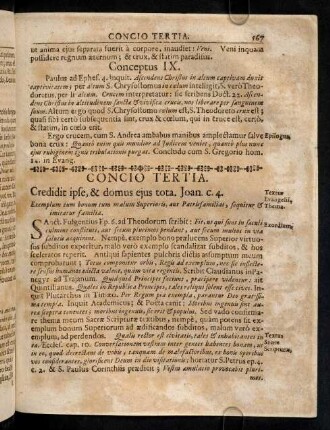 CONCIO TERTIA. 167
ut anima ejus separata fuerit à corpore, inaudiet: Veni. Veni inquam
possidere regnum æternum; & crux, & statim paradisus.
Conceptus IX.
Paulus ad Ephes. 4. inquit. Ascendens Christus in altum captivam duxit
captivitatem: per altum S. Chrysostomus in cælum intelligit: S. verò Theo-
doretus per in altum. Crucem interpretatur: sic scribens
dens Christus in altitudinem sancta & vivifica crucis, nos liberat per sanguinem
suum. Altum ergo quidem est cælum, S. Chrysostomo, & S. Theodoreto crux est; &
quasi sibi consequentia sunt, crux & cælum, qui in cruce est, certò,
& statim, in cælo erit.
Ergo crucem, cum S. Andrea ambabus manibus amplectamur salve
bona crux: Quanti enim quis mundior ad Judicem veniet, quanto plus nunc
Concludo cum S. Gregorio hom.
in Evang.
Epilogus.
CONCIO TERTIA.
Credidit ipse, & domus ejus tota. Joan. c. 4.
Textus
Evangelii,
&
Thema.
Exemplum tum bonum tum malum Superioris, aut Patrisfamilias, sequitur &
imitatur familia.
Exordium.
SAnct. Fulgentius Ep. 6. ad Theodorum scribit: Tit. ii qui sunt in saculi
culmine constituti, aut secum plurimos perdunt, aut secum multos in via
salutis acquirunt. Nempè exemplo bono prælucens Superior virtuo-
sus subditos exportat, malo verò exemplo scandalizat subditos, & suos
federatos reperit. Antiqui sapientes pulchrè dicta assumptum meum
comprobarunt. Poëta: Totus componitur orbis. Regis ad exemplum, nec sic inflecte-
re sensus humanos edicta valent quàm vita regentis. Scribit Claudianus in Pa-
negyr ad Trajanum. Quidquid Principes faciunt, præcipere videntur: ait
Quintilianus. Quales in Republica Principes, tales reliqui solent esse cives. In-
quit Plutarchus in Tit. Per Regum pia exempla, parantur Deo gratissi-
ma templa. Inquit Academicus; & Poëta canit: Moribus ingenui sunt au-
rea sceptra tenentes: moribus ingenuis, sic erit & populus. Sed vado confirma-
re thema meum Sacræ Scripturæ textibus, nempè, quàm potens sit ex-
emplum bonum Superiorum ad ædificandos subditos, malum verò ex-
emplum, ad perdendos. Qualis rector est civitatis, tales & inhabitantes in
ea. Eccles. cap. 10. Conversationem vestram inter gentes habentes bonam, ut
in eo, quod detrectant de vobis, tanquam de malefactoribus, ex bonis operibus
vos considerantes, glorificent Deum in die visitationis; hortatur S. Petrus ep. 4.
c. 2. & S. Paulus Corinthiis prædicit; Vestra amulatio provocabit pluri-
mos.
Textus
Sacræ
Scripturæ,